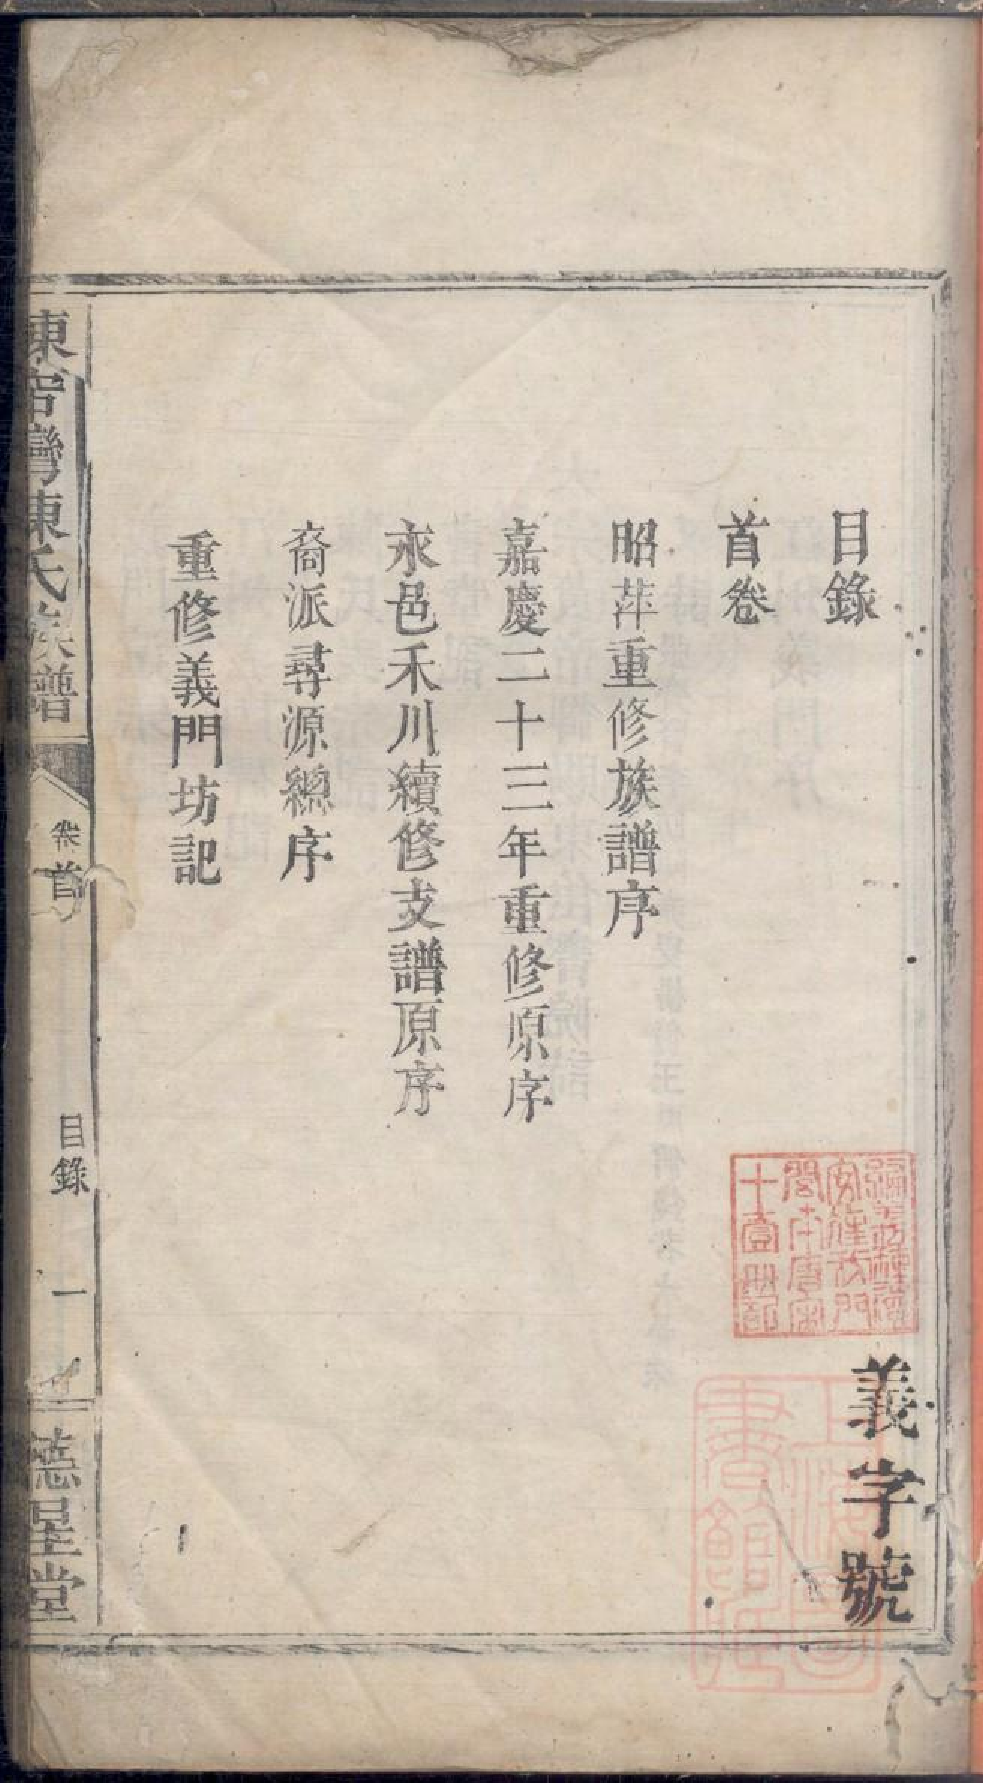 目錄
首卷
昭萍重修族譜序
嘉慶二十三年重修原序
永邑禾川續修支譜原序
裔派尋源總序
重修義門坊記
十壹冊部
義字號
上海圖書館藏
灣陳氏族譜
卷首
目錄
一
德星堂